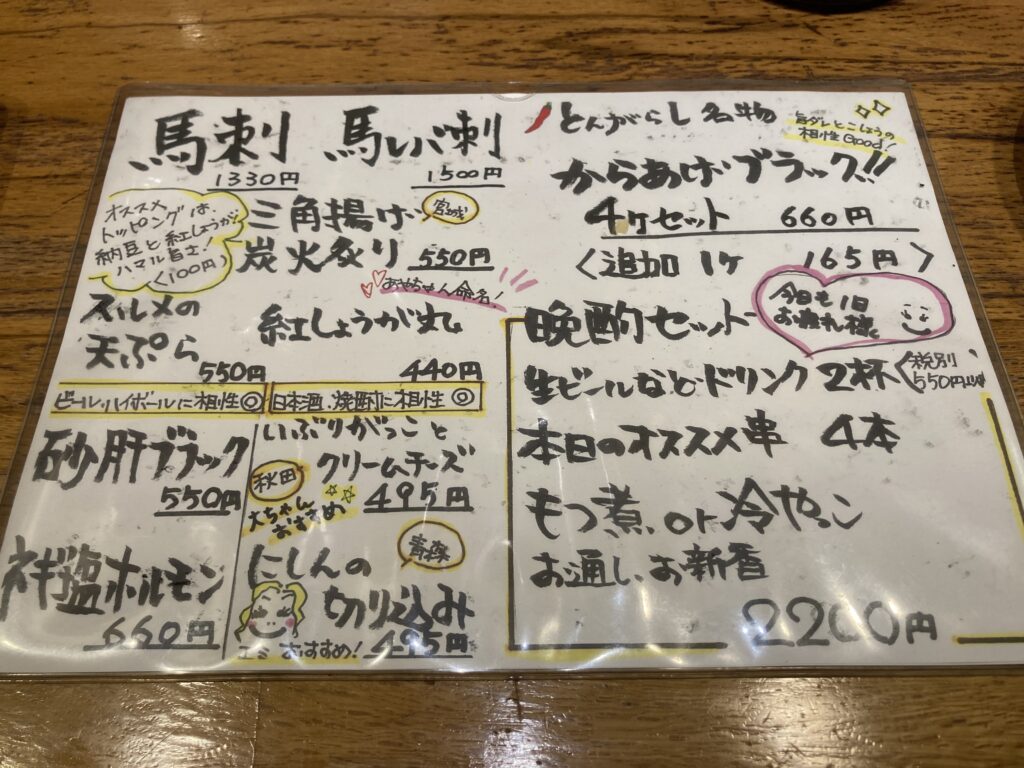 馬刺 馬レバ刺
1330円 1500円
オススメ
トッピングは
納豆と紅しょうが
ハマル旨さ!
<100円>
三角揚げ
宮城
炭火炙り 550円
スルメの
天ぷら
550円
命名!
紅しょうが丸
440円
ビール・ハイボールに相性◎
日本酒、焼酎に相性◎
砂肝ブラック
550円
ネギ塩ホルモン
660円
いぶりがっこと
クリームチーズ
秋田
495円
大ちゃん
おすすめ
青森
にしんの
切り込み
495円
おすすめ!
とんがらし名物
旨ダレとこしょうの
相性Good!
からあげブラック!!
4ヶセット 660円
<追加 1ヶ 165円>
晩酌セット
今日も1日
お疲れ様
生ビールなどドリンク 2杯
税別
本日のオススメ串 4本
もつ煮 or 冷やっこ
お通し、お新香
2200円